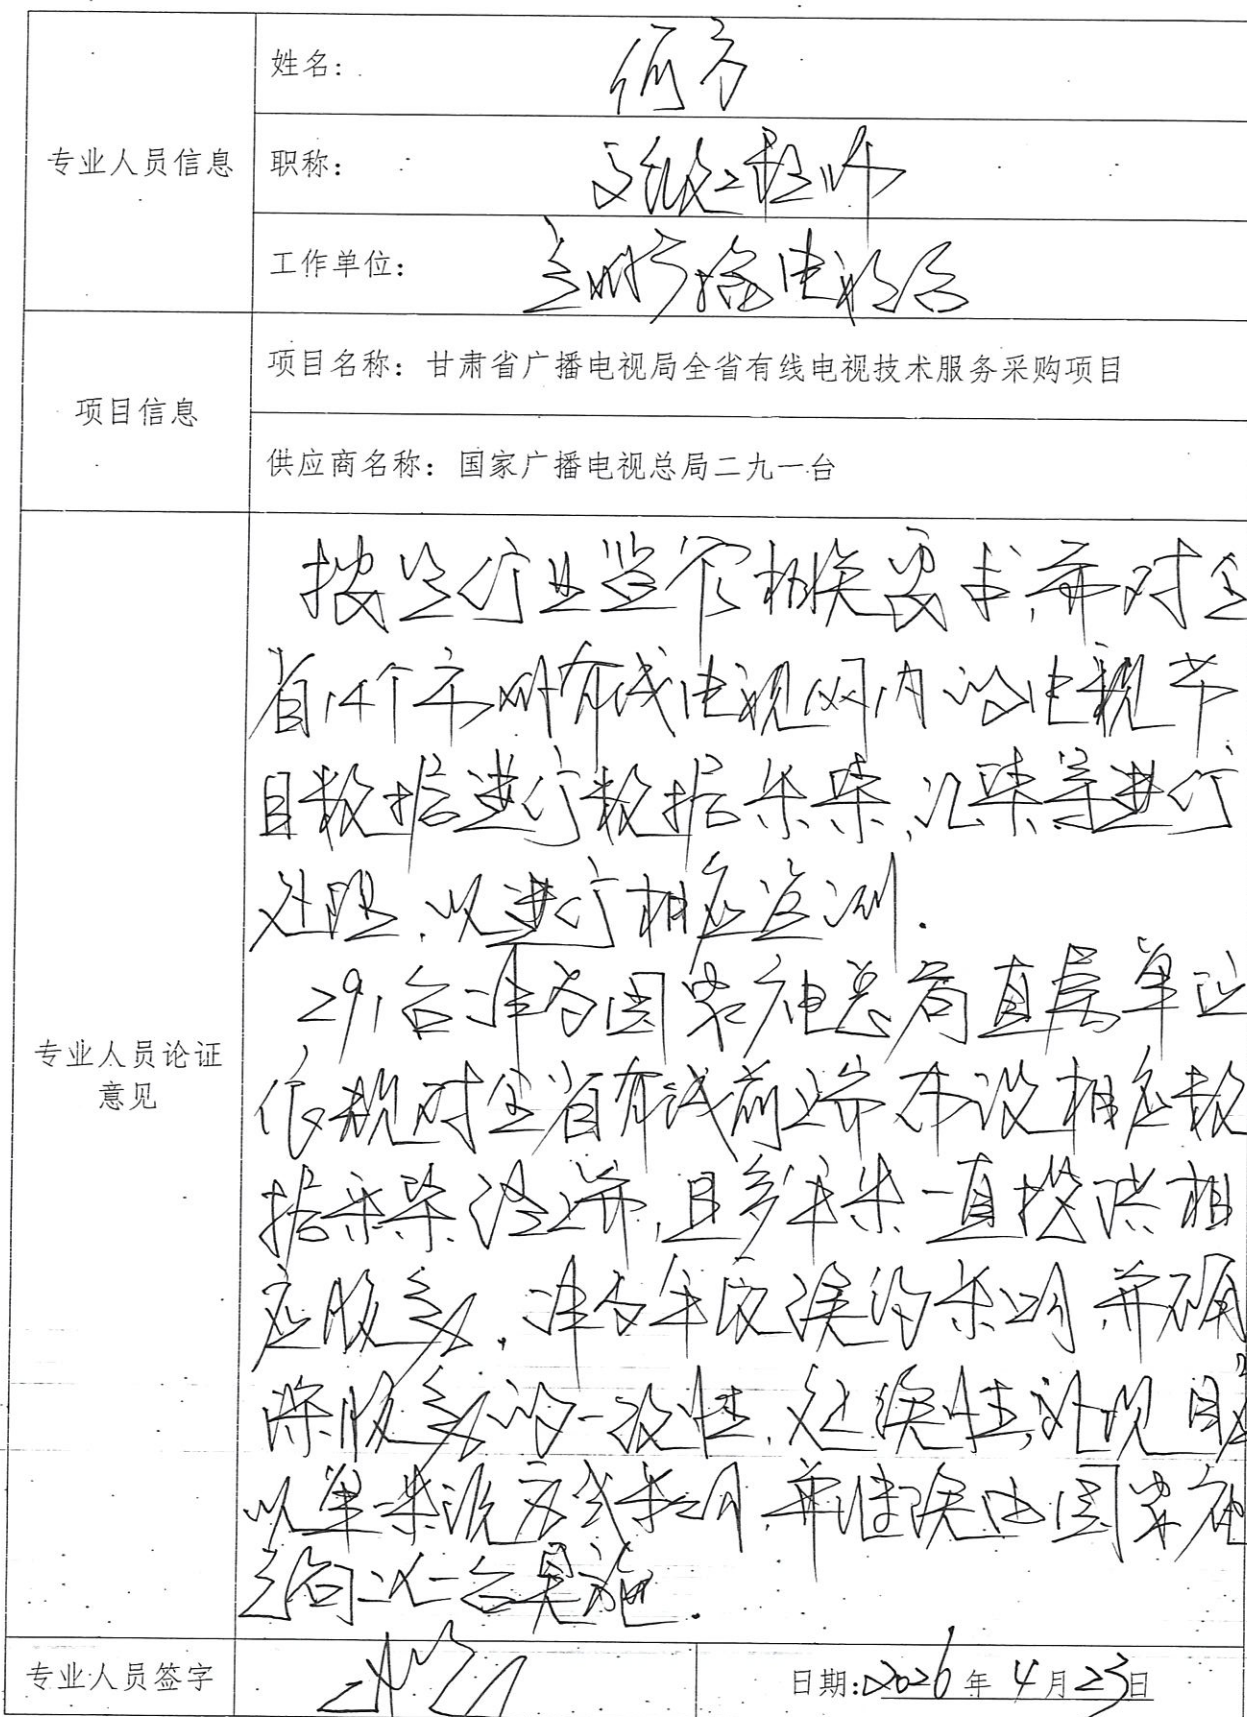 专业人员信息
姓名：
职称：高级工程师
工作单位：兰州广播电视台
项目信息
项目名称：甘肃省广播电视局全省有线电视技术服务采购项目
供应商名称：国家广播电视总局二九一台
专业人员论证
意见
按照行业监管相关要求,需对全
省14个市州有线电视网内的电视节
目数据进行数据采集、汇集等进行
处理,以进行相应监测.
291台作为国家广电总局直属单位
依规对全省有线前端布设相应数
据采集终端,且多年来一直提供相
应服务.作为年度续约采购,需确
保服务的一致性、延续性,
以单一来源方式采购,并继续由国家广电
总局二九一台实施.
专业人员签字
日期:2026年4月23日